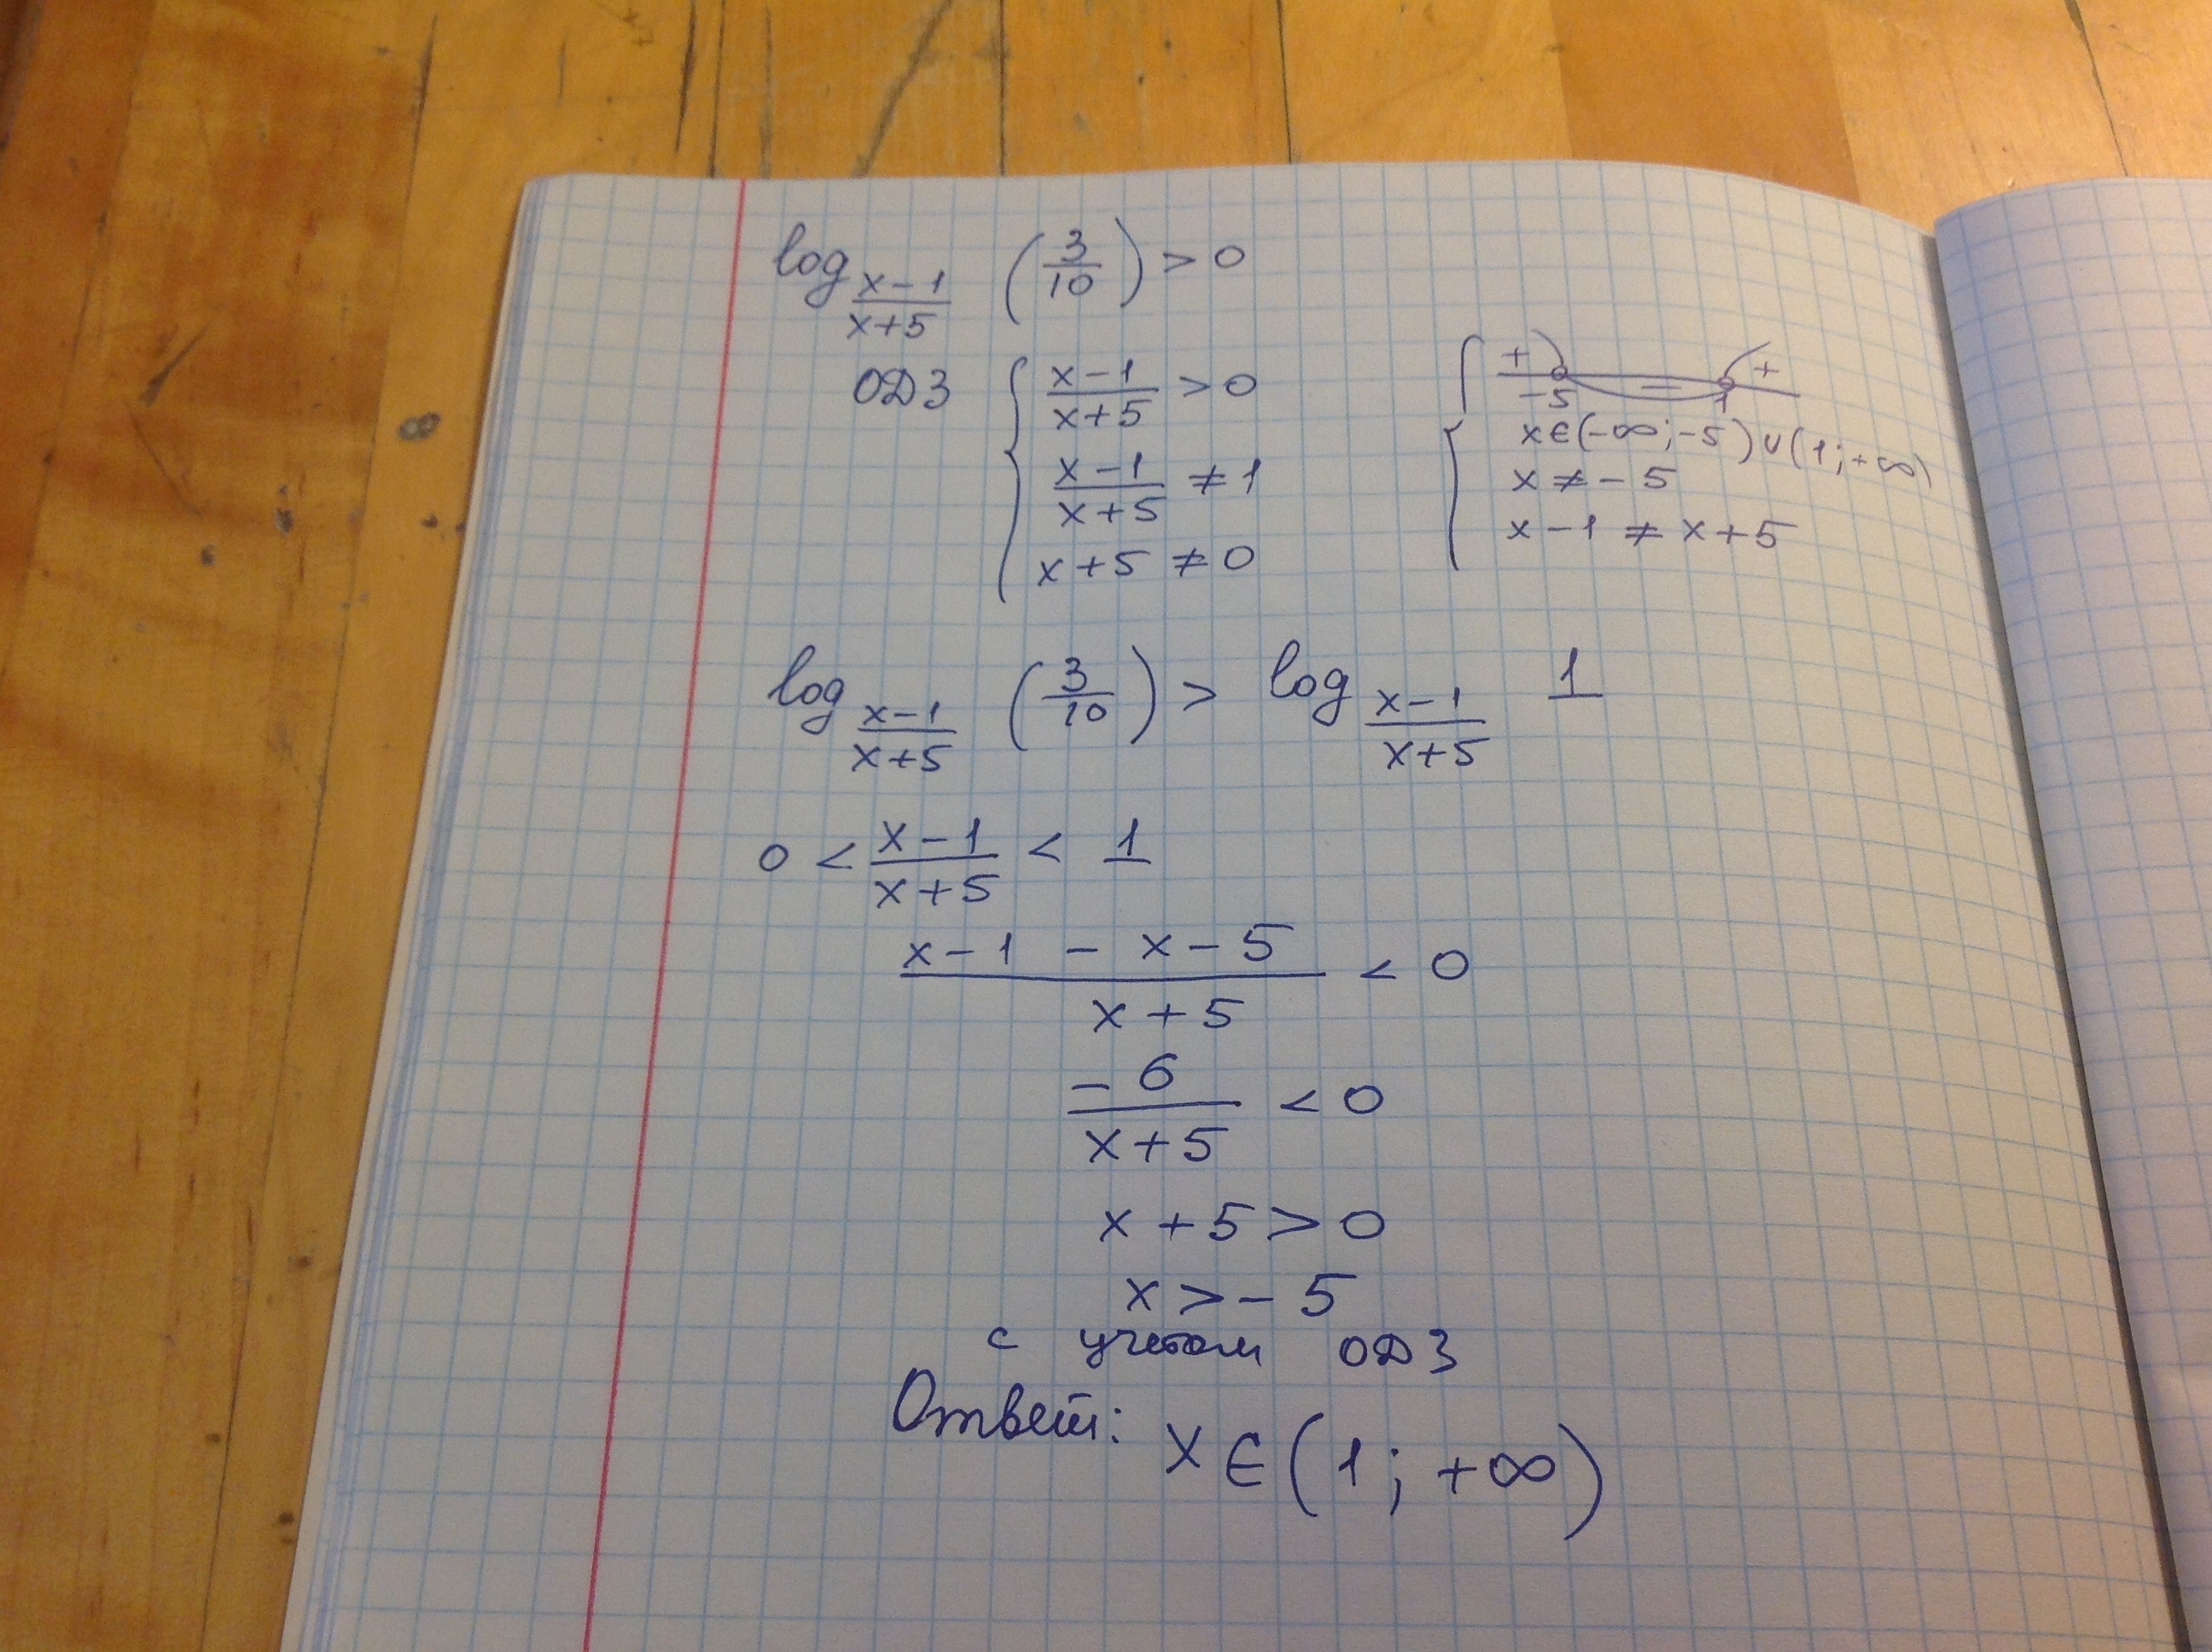 log_{\frac{x-1}{x+5}} (\frac{3}{10}) > 0
ОДЗ { \frac{x-1}{x+5} > 0
\frac{x-1}{x+5} ≠ 1
x+5 ≠ 0
{ + -5 − 1 +
x ∈ (-∞; -5) ∪ (1; +∞)
x ≠ -5
x-1 ≠ x+5
log_{\frac{x-1}{x+5}} (\frac{3}{10}) > log_{\frac{x-1}{x+5}} 1
0 < \frac{x-1}{x+5} < 1
\frac{x-1 - x-5}{x+5} < 0
\frac{-6}{x+5} < 0
x+5 > 0
x > -5
с учетом ОДЗ
Ответ: x ∈ (1; +∞)